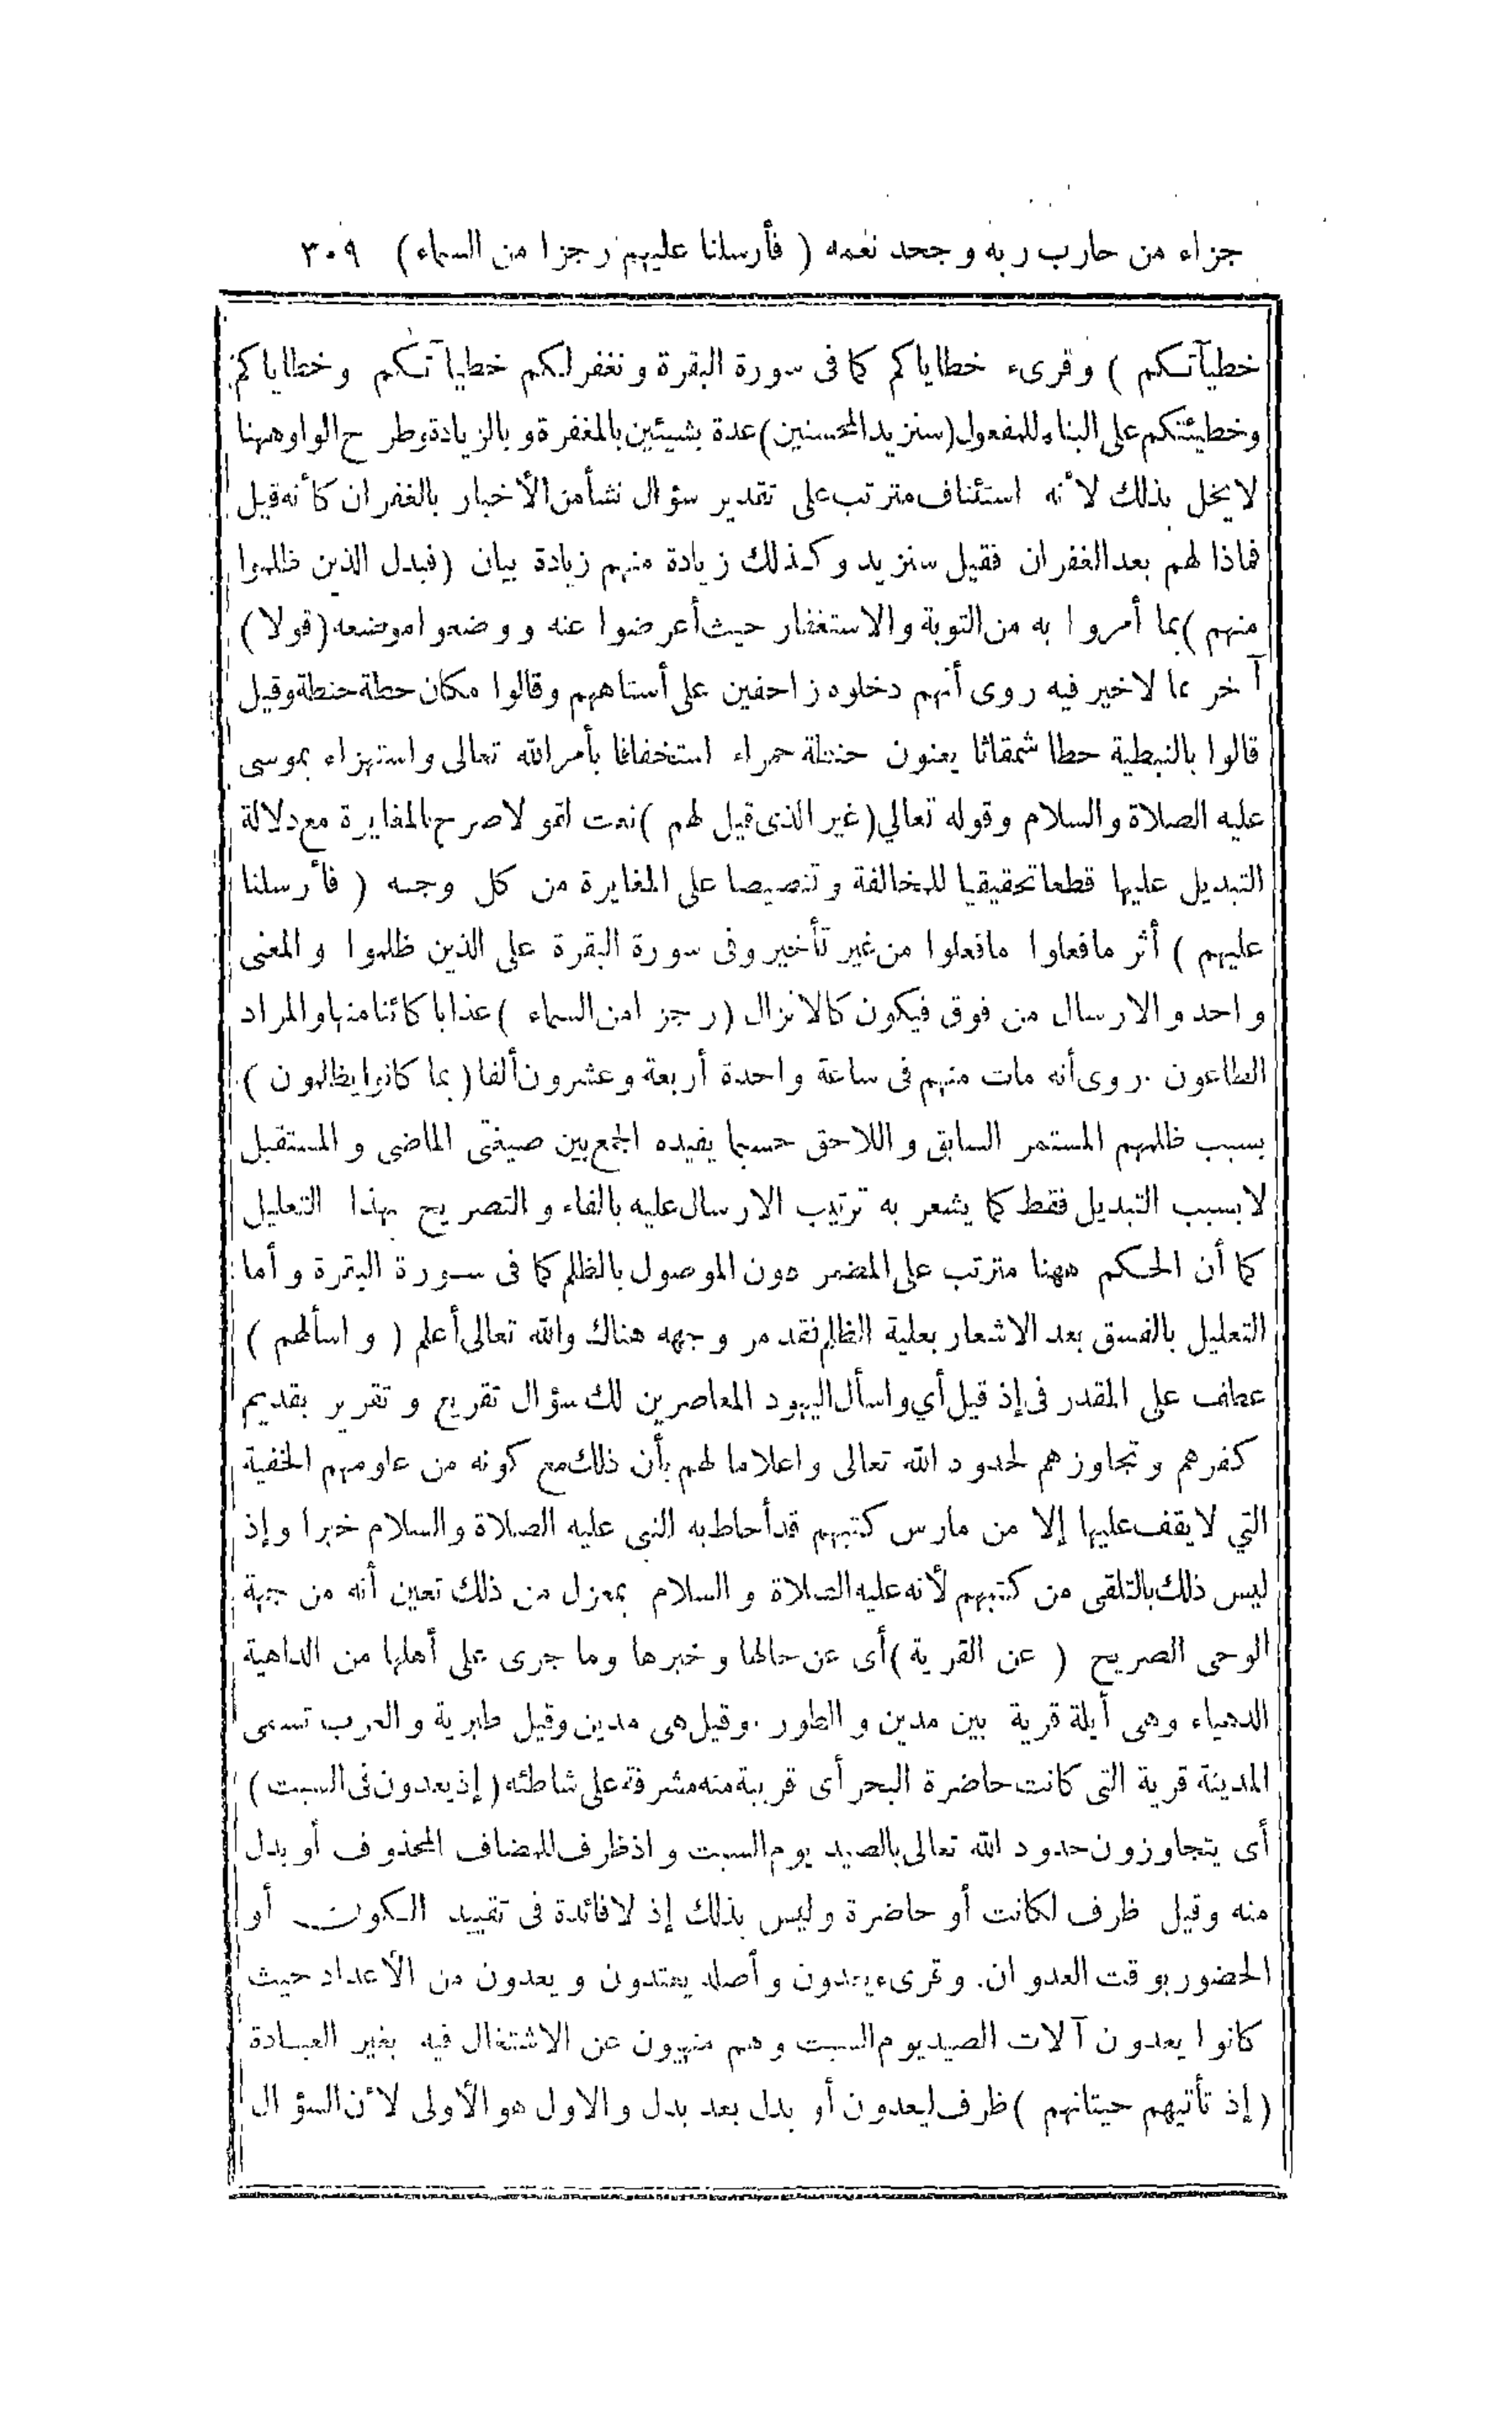 جزاء من حارب ربه وجحد نعمه ( فأرسلنا عليهم رجزا من السماء ) ٣٠٩
خطيآتكم ) وقرىء خطاياكم كما فى سورة البقرة ونغفر لكم خطيآتكم وخطاياكم
وخطيئتكم على البناء للمفعول (سنزيد المحسنين) عدة بشيئين بالمغفرة وبالزيادة وطرح الواو ههنا
لا يخل بذلك لأنه استئناف مترتب على تقدير سؤال نشأ من الأخبار بالغفران كأنه قيل
فماذا لهم بعد الغفران فقيل سنزيد وكذلك زيادة منهم زيادة بيان (فبدل الذين ظلموا
منهم ) بما أمروا به من التوبة والاستغفار حيث أعرضوا عنه ووضعوا موضعه (قولا)
آخر مما لا خير فيه روى أنهم دخلوه زاحفين على أستاههم وقالوا مكان حطة حنطة وقيل
قالوا بالنبطية حطا شمقاثا يعنون حنطة حمراء استخفافا بأمر الله تعالى واستهزاء بموسى
عليه الصلاة والسلام وقوله تعالي (غير الذى قيل لهم ) نعت لقولا صرح بالمغايرة مع دلالة
التبديل عليها قطعا تحقيقيا للمخالفة وتنصيصا على المغايرة من كل وجه ( فأرسلنا
عليهم ) أثر ما فعلوا ما فعلوا من غير تأخير وفى سورة البقرة على الذين ظلموا والمعنى
واحد والارسال من فوق فيكون كالانزال (رجزا من السماء ) عذابا كائنا منها والمراد
الطاعون . روى أنه مات منهم فى ساعة واحدة أربعة وعشرون ألفا ( بما كانوا يظلمون )
بسبب ظلمهم المستمر السابق واللاحق حسبما يفيده الجمع بين صيغتى الماضى والمستقبل
لا بسبب التبديل فقط كما يشعر به ترتيب الارسال عليه بالفاء والتصريح بهذا التعليل
كما أن الحكم ههنا مترتب على المضمر دون الموصول بالظلم كما فى سورة البقرة وأما
التعليل بالفسق بعد الاشعار بعلية الظلم فقد مر وجهه هناك والله تعالى أعلم ( واسألهم )
عطف على المقدر فى إذ قيل أي واسأل اليهود المعاصرين لك سؤال تقريع وتقرير بقديم
كفرهم وتجاوزهم لحدود الله تعالى واعلاما لهم بأن ذلك مع كونه من علومهم الخفية
التي لا يقف عليها إلا من مارس كتبهم قد أحاط به النبى عليه الصلاة والسلام خبرا وإذ
ليس ذلك بالتلقى من كتبهم لأنه عليه الصلاة والسلام بمعزل من ذلك تعين أنه من جهة
الوحى الصريح ( عن القرية ) أى عن حالها وخبرها وما جرى على أهلها من الداهية
الدهياء وهى أيلة قرية بين مدين والطور . وقيل هى مدين وقيل طبرية والعرب تسمى
المدينة قرية التى كانت حاضرة البحر أى قريبة منه مشرفة على شاطئه ( إذ يعدون فى السبت )
أى يتجاوزون حدود الله تعالى بالصيد يوم السبت واذ ظرف للمضاف المحذوف أو بدل
منه وقيل ظرف لكانت أو حاضرة وليس بذلك إذ لا فائدة فى تقييد الكون أو
الحضور بوقت العدوان. وقرىء يعدون وأصله يعتدون ويعدون من الأعداد حيث
كانوا يعدون آلات الصيد يوم السبت وهم منهيون عن الاشتغال فيه بغير العبادة
( إذ تأتيهم حيتانهم ) ظرف ليعدون أو بدل بعد بدل والاول هو الأولى لأن السؤال